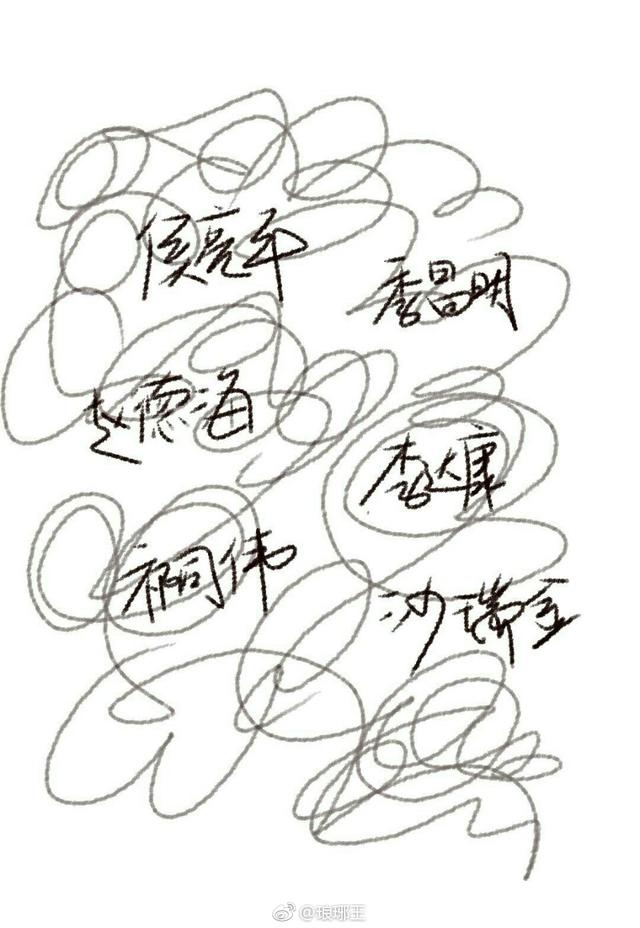 侯亮平
季昌明
赵德海
李达康
祁同伟
沙瑞金
@琅琊王